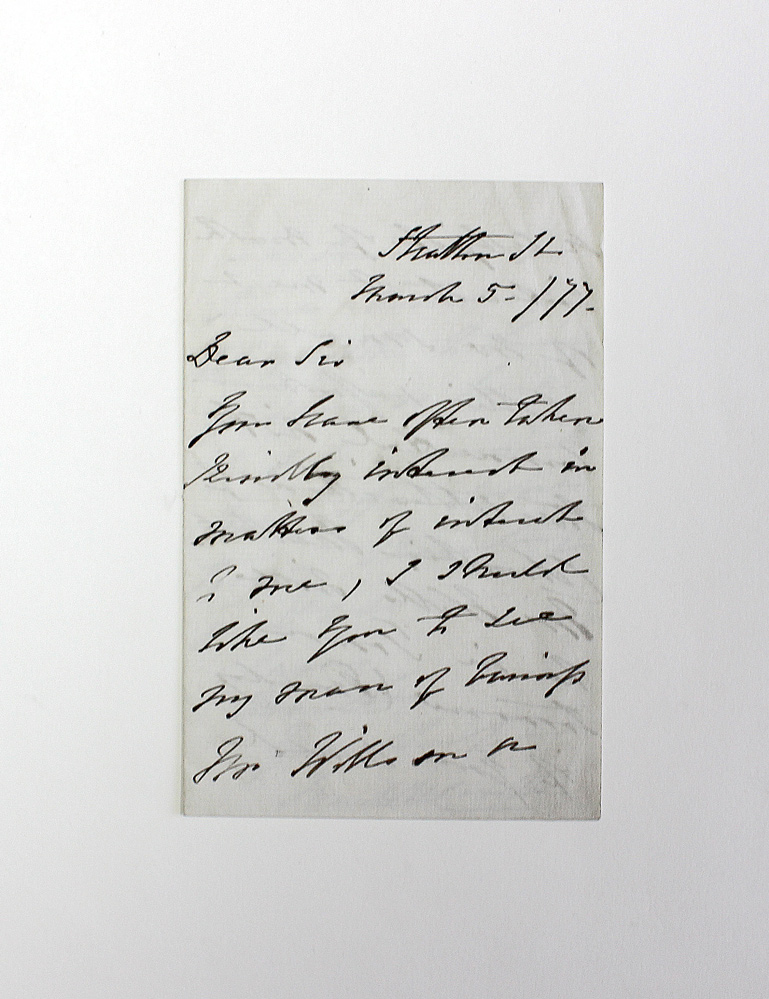 Stratton St.
March 5 - /77.
Dear Sir
You have often taken
kindly interest in
matters of interest
to me, I should
like you to see
my man of business
Mr Wills on a